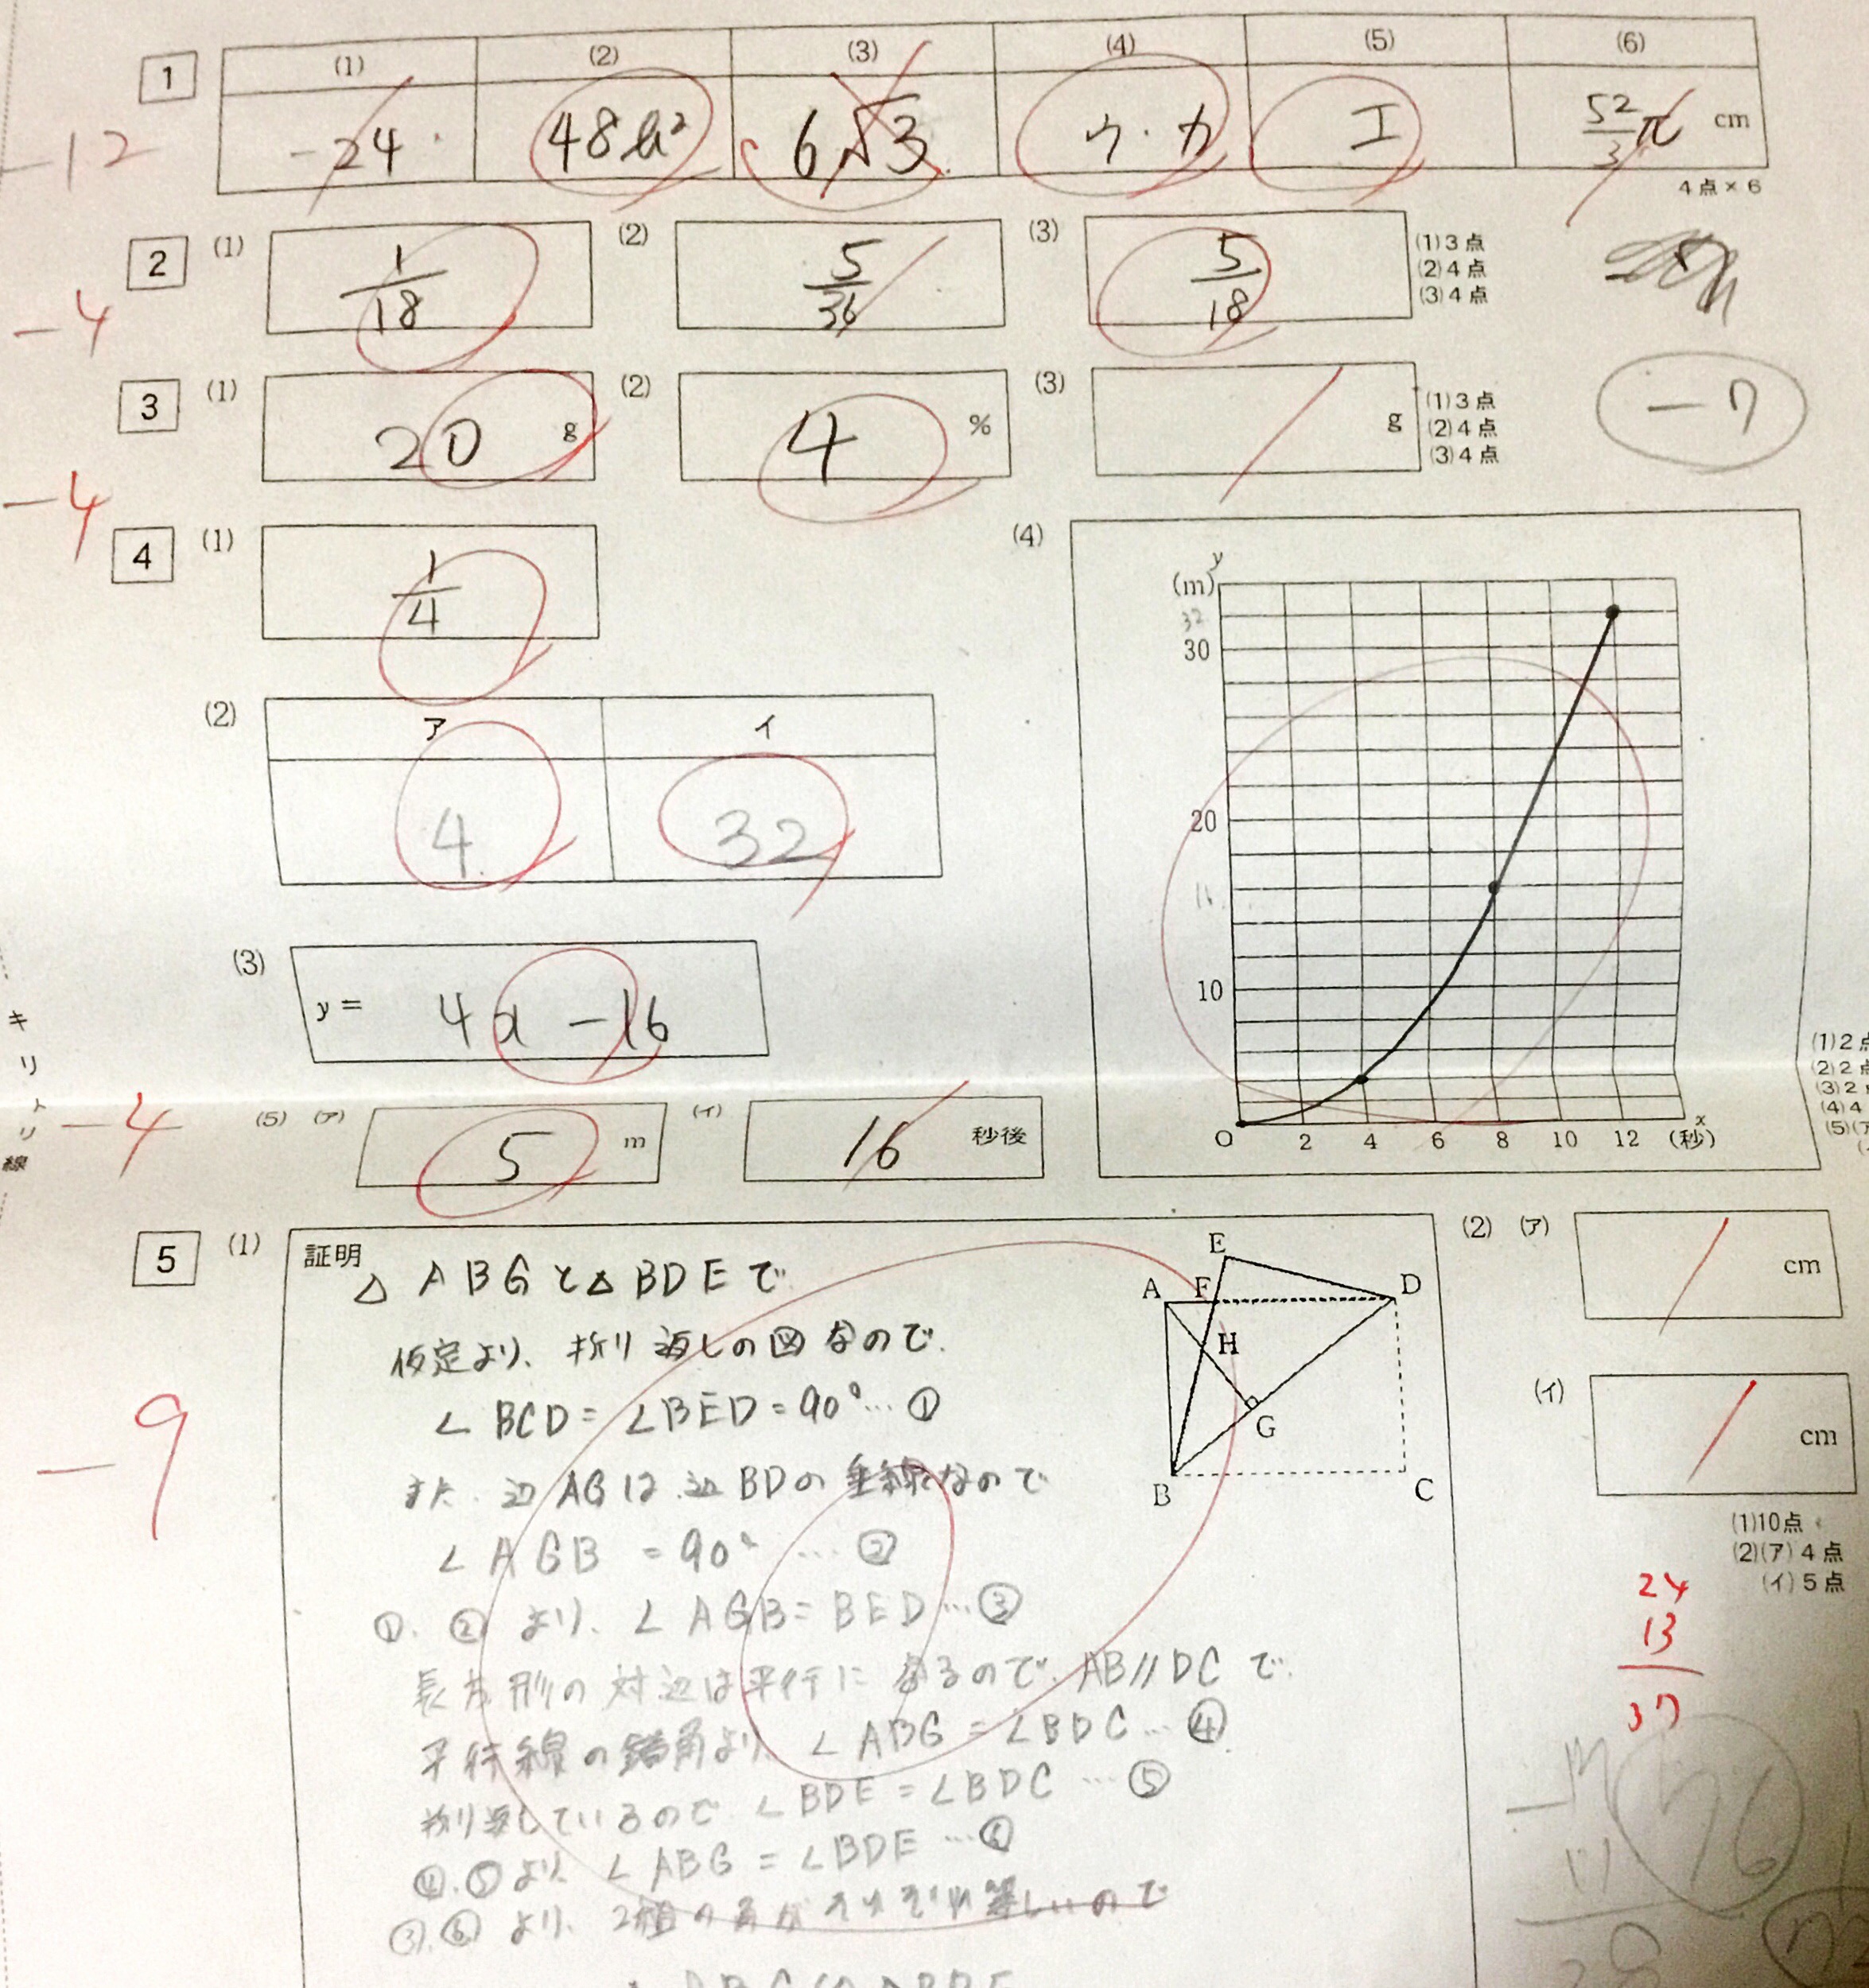 1 (1) (2) (3) (4) (5) (6)
-12
-24 48a² 6√3 ウ・カ エ 52/3 π cm
4点×6
2 (1) 1/18 (2) 5/36 (3) 5/18
(1)3点
(2)4点
(3)4点
-4
3 (1) 20 g (2) 4 % (3) g
(1)3点
(2)4点
(3)4点
-7
-4
4 (1) 1/4
(2) ア イ
4 32
(3) y = 4x -16
(4)
y
(m)
32
30
20
16
10
O 2 4 6 8 10 12 (秒) x
(1)2点
(2)2点
(3)2
(4)4
(5)(ア
キリトリ線
-4
(5) (ア) 5 m (イ) 16 秒後
5 (1) 証明
△ABGと△BDEで
仮定より、折り返しの図なので、
∠BCD=∠BED=90°…①
また、辺AGは、辺BDの垂線なので
∠AGB =90° …②
①、②より、∠AGB=BED…③
長方形の対辺は平行になるので、AB//DCで、
平行線の錯角より、∠ABG=∠BDC…④
折り返しているので、∠BDE=∠BDC…⑤
④、⑤より、∠ABG=∠BDE…⑥
③、⑥より、2組の角がそれぞれ等しいので
E
A F D
H
G
B C
-9
(2) (ア) cm
(イ) cm
(1)10点
(2)(ア)4点
(イ)5点
24
13
37
76